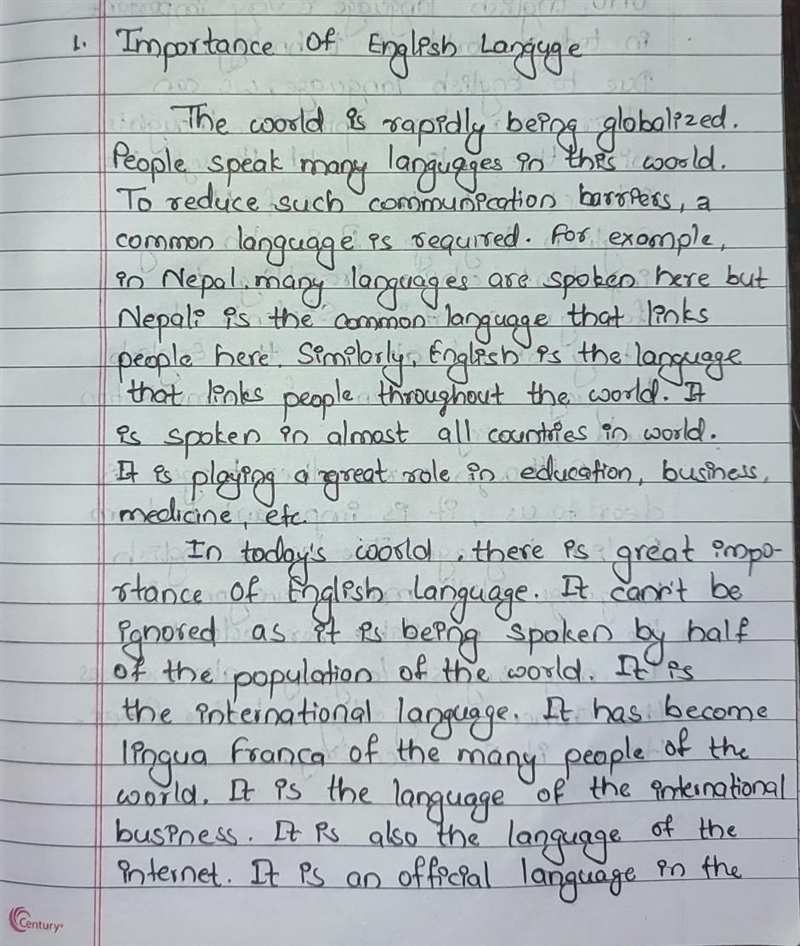 1. Importance Of English Languge
The world is rapidly being globalized.
People speak many languages in this world.
To reduce such communication barriers, a
common language is required. For example,
in Nepal, many languages are spoken here but
Nepali is the common language that links
people here. Similorly, English is the language
that links people throughout the world. It
is spoken in almost all countries in world.
It is playing a great role in education, business,
medicine, etc.
In today's world, there is great impo-
rtance Of English language. It cann't be
ignored as it is being spoken by half
of the population of the world. It is
the international language. It has become
lingua franca of the many people of the
world. It is the language of the international
business. It is also the language of the
internet. It is an official language in the
Century